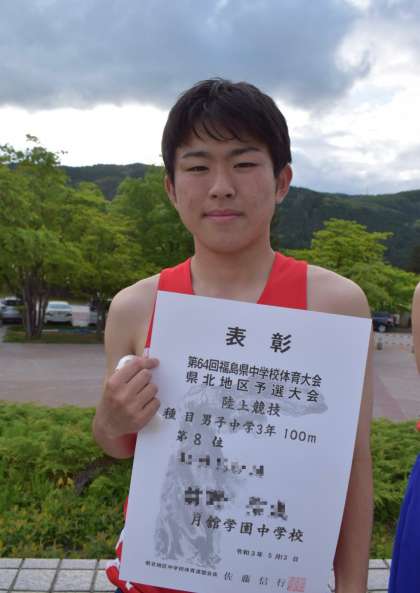 表彰
第64回福島県中学校体育大会
県北地区予選大会
陸上競技
種目 男子中学3年 100m
第8位
月舘学園中学校
令和3年5月13日
県北地区中学校体育連盟会長 佐藤信行